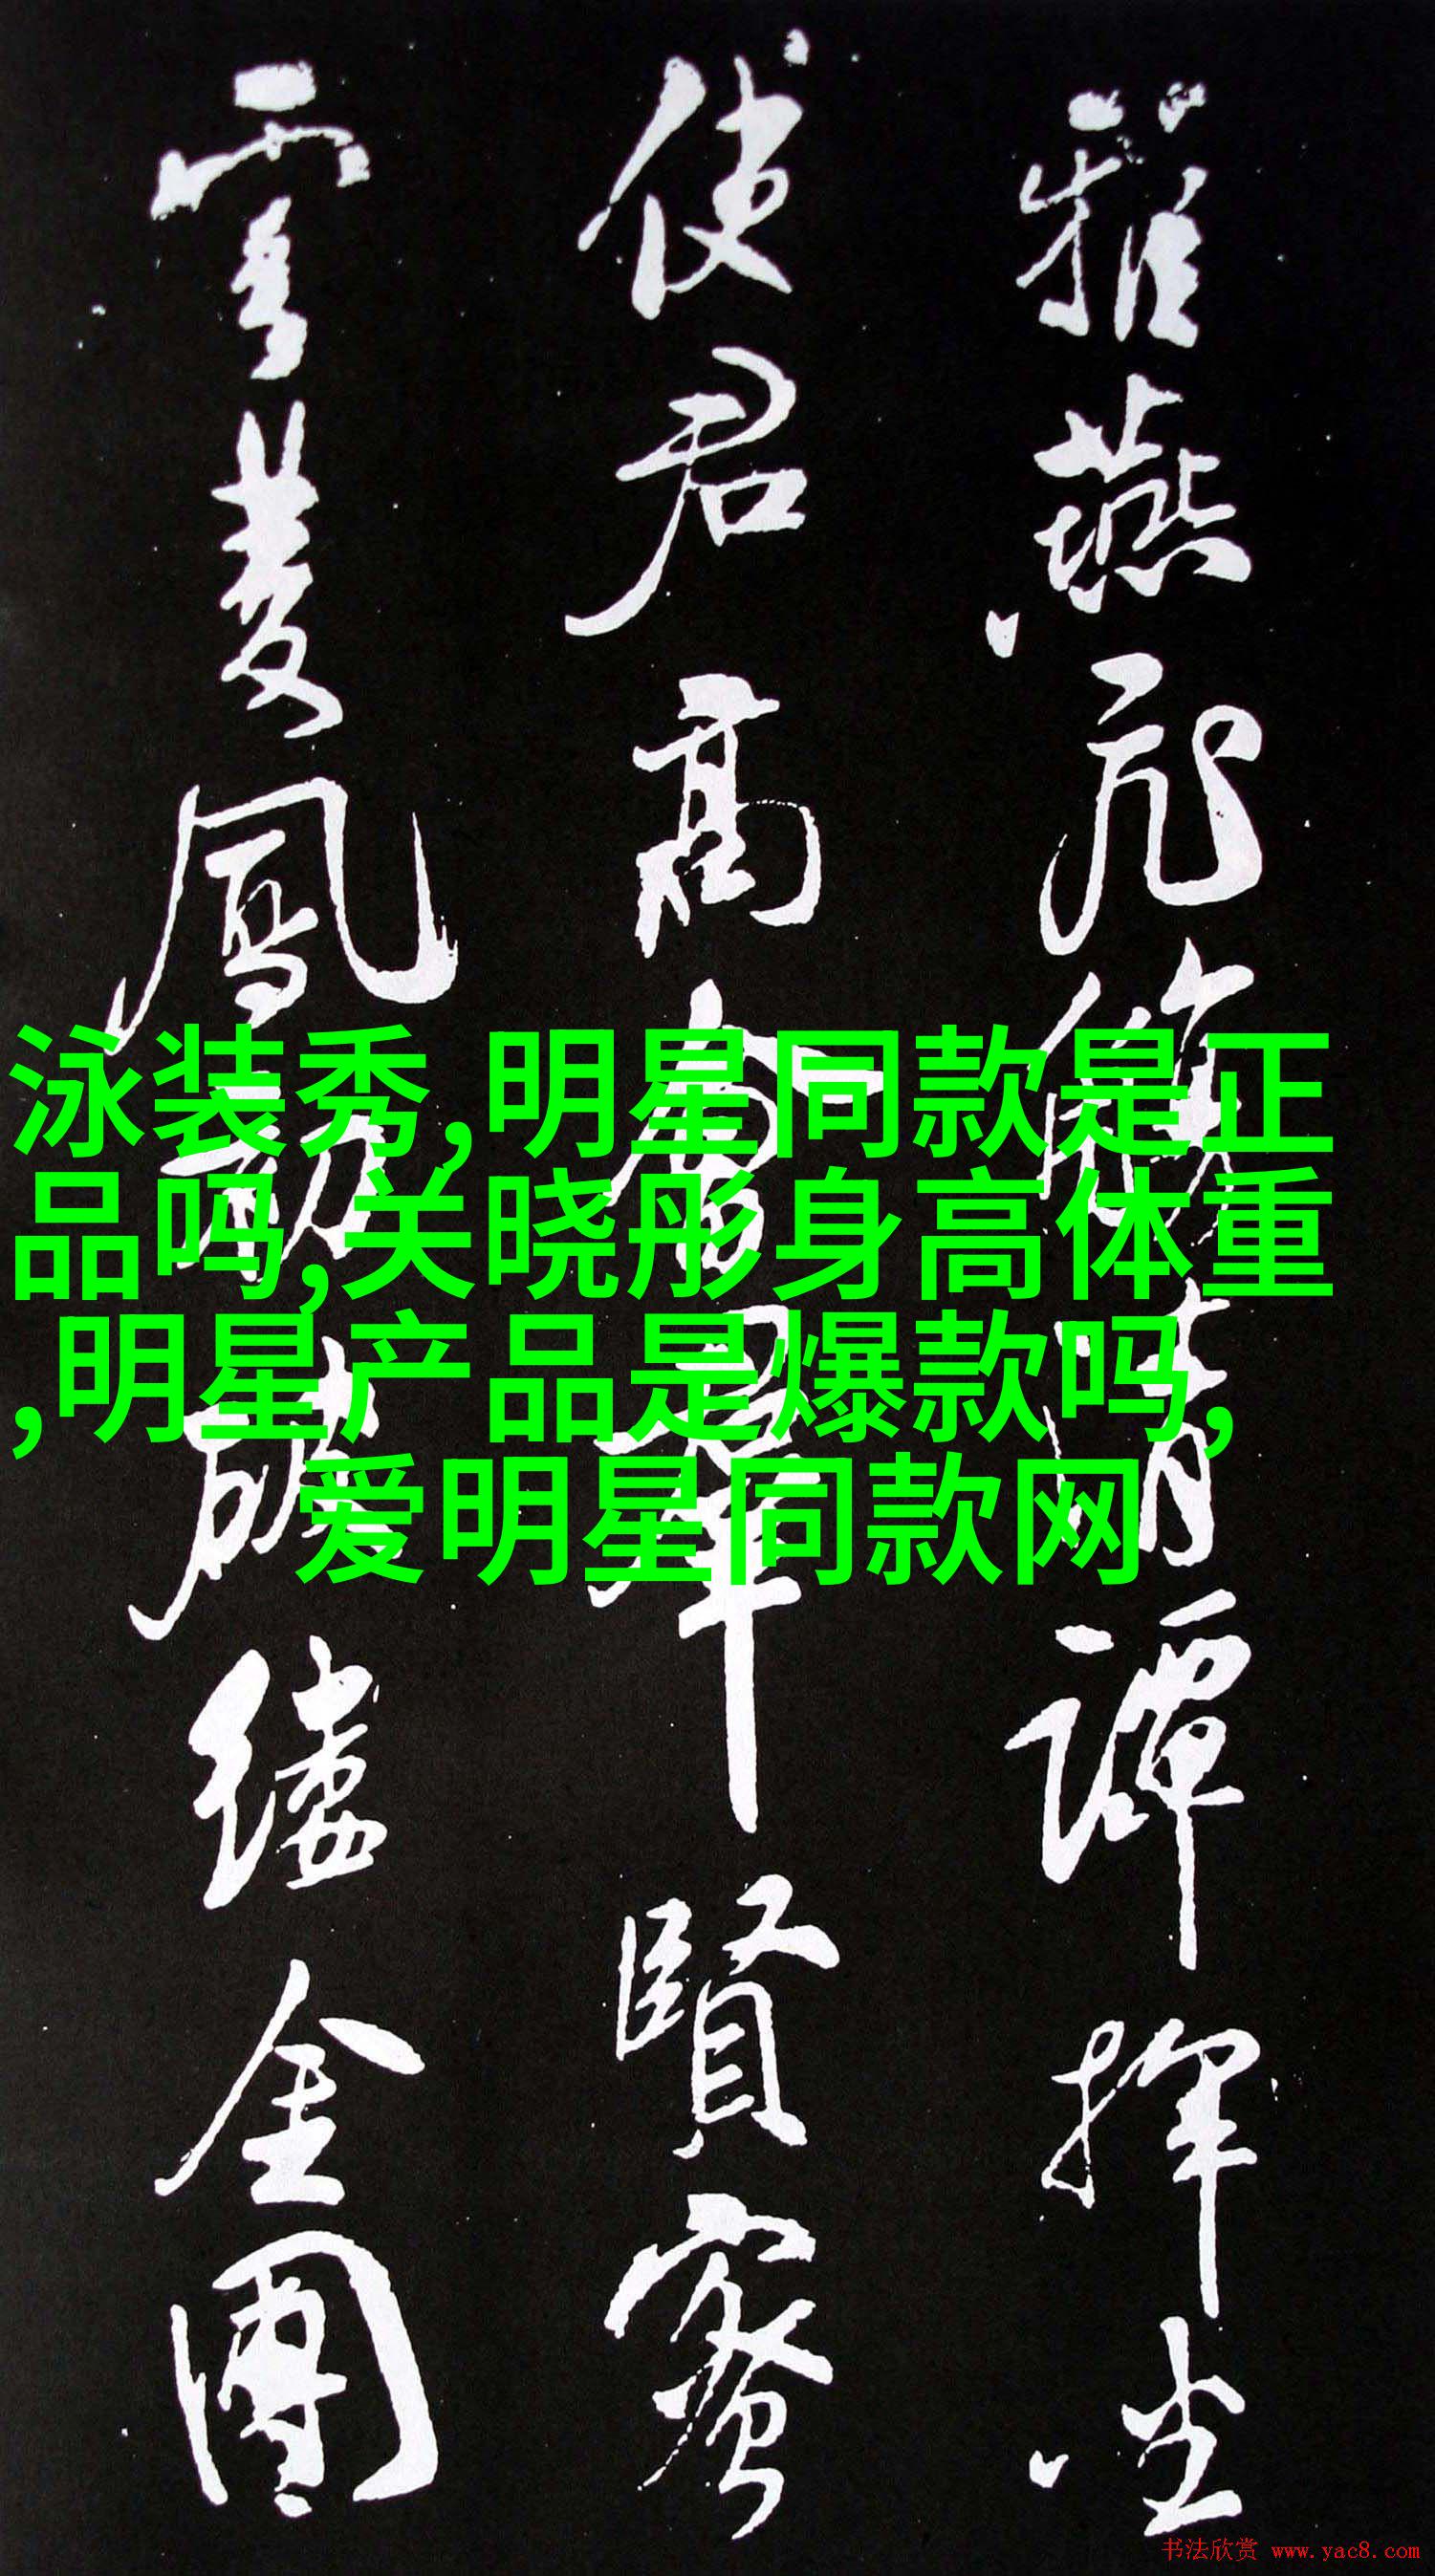 雅燕飛觴清譚揮坐
使君高會羣賢密
雲雙鳳初破縷金團
泳装秀,明星同款是正
品吗,关晓彤身高体重
,明星产品是爆款吗,
爱明星同款网
书法欣赏 www.yac8.com